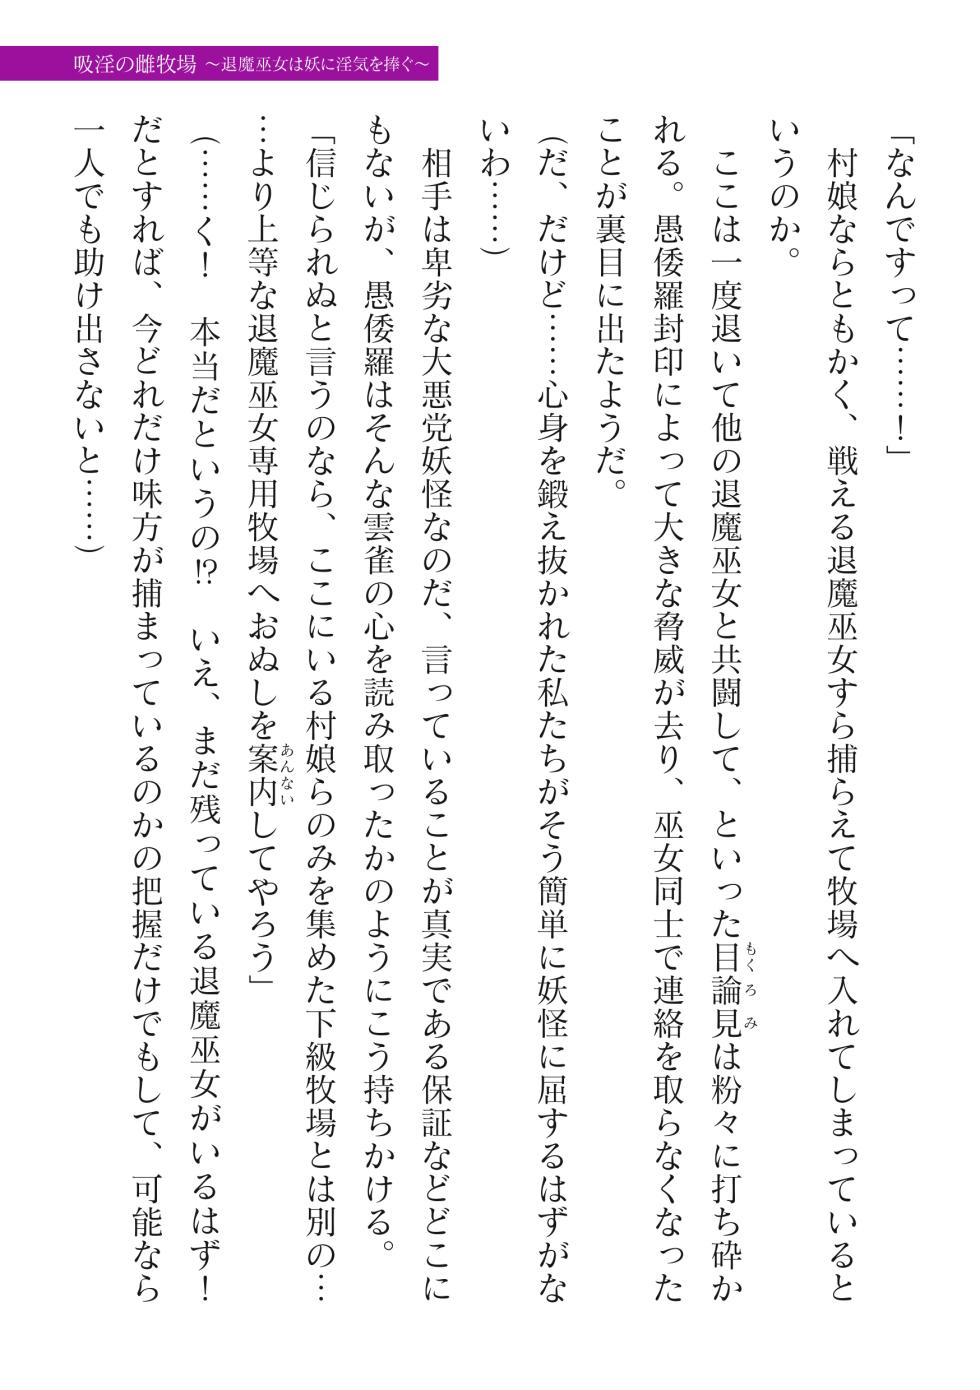 吸淫の雌牧場 ～退魔巫女は妖に淫気を捧ぐ～
「なんですって……！」
村娘ならともかく、戦える退魔巫女すら捕らえて牧場へ入れてしまっていると
いうのか。
ここは一度退いて他の退魔巫女と共闘して、といった目論見は粉々に打ち砕か
もくろみ
れる。愚倭羅封印によって大きな脅威が去り、巫女同士で連絡を取らなくなった
ことが裏目に出たようだ。
（だ、だけど……心身を鍛え抜かれた私たちがそう簡単に妖怪に屈するはずがな
いわ……）
相手は卑劣な大悪党妖怪なのだ、言っていることが真実である保証などどこに
もないが、愚倭羅はそんな雲雀の心を読み取ったかのようにこう持ちかける。
「信じられぬと言うのなら、ここにいる村娘らのみを集めた下級牧場とは別の…
…より上等な退魔巫女専用牧場へおぬしを案内してやろう」
あんない
（……く！　本当だというの⁉　いえ、まだ残っている退魔巫女がいるはず！
だとすれば、今どれだけ味方が捕まっているのかの把握だけでもして、可能なら
一人でも助け出さないと……）